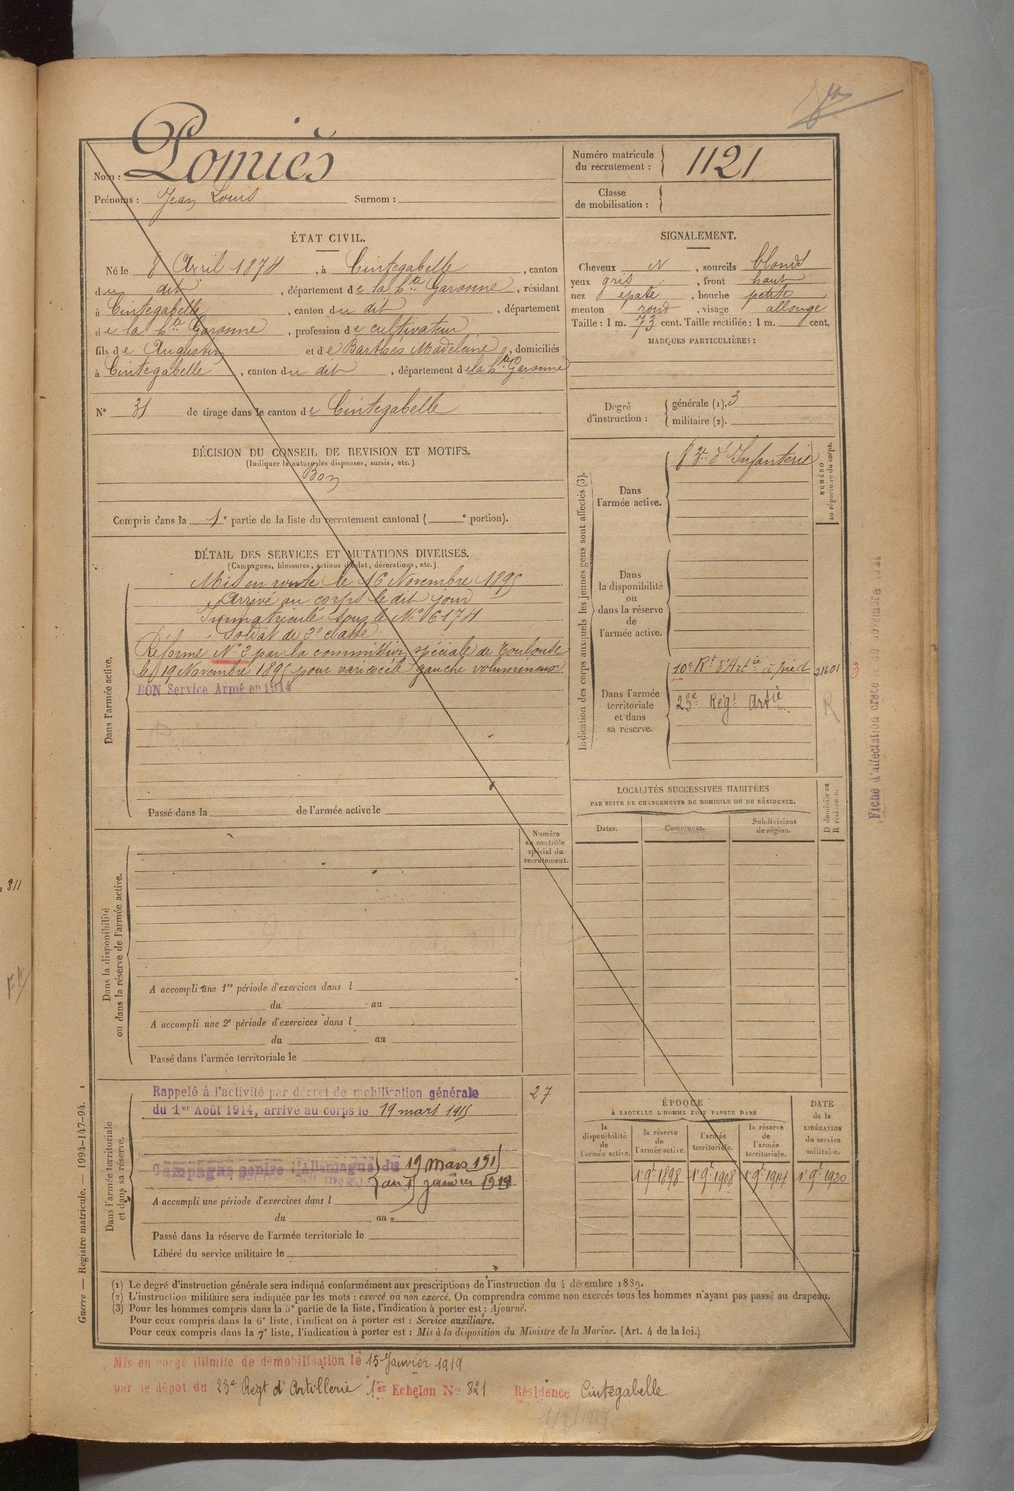 Nom : Lomiès
Prénoms : Jean Louis Surnom :
Numéro matricule du recrutement : 1121
Classe de mobilisation :
ÉTAT CIVIL.
Né le 8 Avril 1874, à Cintegabelle, canton
du dit, département de la Hte Garonne, résidant
à Cintegabelle, canton du dit, département
de la Hte Garonne, profession de cultivateur
fils de Augustin et de Barthès Madeleine, domiciliés
à Cintegabelle, canton du dit, département de la Hte Garonne
N° 31 de tirage dans le canton de Cintegabelle
SIGNALEMENT.
Cheveux N, sourcils blond
yeux gris, front haut
nez épaté, bouche petite
menton rond, visage allongé
Taille : 1 m. 73 cent. Taille rectifiée : 1 m. cent.
MARQUES PARTICULIÈRES :
Degré d'instruction : générale (1). 3
militaire (2).
DÉCISION DU CONSEIL DE REVISION ET MOTIFS.
(Indiquer la nature des dispenses, sursis, etc.)
Bon
Compris dans la 1e partie de la liste du recrutement cantonal ( e portion).
DÉTAIL DES SERVICES ET MUTATIONS DIVERSES.
(Campagnes, blessures, actions d'éclat, décorations, etc.)
Dans l'armée active.
Mis en route le 16 Novembre 1895
Arrivé au corps le dit jour
Immatriculé sous le N° 6174
Soldat de 2e classe
Réformé N° 2 par la commission spéciale de Toulouse
le 19 Novembre 1895 pour varicocèle gauche volumineux
BON Service Armé en 1914
Passé dans la de l'armée active le
Indication des corps auxquels les jeunes gens sont affectés (3).
NUMÉRO au répertoire du corps.
Dans l'armée active.
d'Infanterie
Dans la disponibilité ou dans la réserve de l'armée active.
Dans l'armée territoriale et dans sa réserve.
10e Rt d'Artie à pied
23e Régt Artie
LOCALITÉS SUCCESSIVES HABITÉES
PAR SUITE DE CHANGEMENTS DE DOMICILE OU DE RÉSIDENCE.
Dates. Communes. Subdivisions de région. D domicile ou R résidence.
Numéro au contrôle spécial du recrutement.
Dans la disponibilité ou dans la réserve de l'armée active.
A accompli une 1re période d'exercices dans l
du au
A accompli une 2e période d'exercices dans l
du au
Passé dans l'armée territoriale le
Dans l'armée territoriale et dans sa réserve.
Rappelé à l'activité par décret de mobilisation générale
du 1er Août 1914, arrivé au corps le 19 mars 1915
27
Campagne contre l'Allemagne du 19 mars 1915
janvier 1919
A accompli une période d'exercices dans l
du au
Passé dans la réserve de l'armée territoriale le
Libéré du service militaire le
ÉPOQUE
À LAQUELLE L'HOMME DOIT PASSER DANS
la disponibilité de l'armée active.
la réserve de l'armée active.
l'armée territoriale.
la réserve de l'armée territoriale.
DATE de la LIBÉRATION du service militaire.
1 9e 1898 1 9e 1908 1 9e 1914 1 9e 1920
(1) Le degré d'instruction générale sera indiqué conformément aux prescriptions de l'instruction du 4 décembre 1889.
(2) L'instruction militaire sera indiquée par les mots : exercé ou non exercé. On comprendra comme non exercés tous les hommes n'ayant pas passé au drapeau.
(3) Pour les hommes compris dans la 5e partie de la liste, l'indication à porter est : Ajourné.
Pour ceux compris dans la 6e liste, l'indication à porter est : Service auxiliaire.
Pour ceux compris dans la 7e liste, l'indication à porter est : Mis à la disposition du Ministre de la Marine. (Art. 4 de la loi.)
Mis en congé illimité de démobilisation le 15 Janvier 1919
par le dépôt du 23e Regt d'Artillerie 1er Echelon N° 821 Résidence Cintegabelle
Guerre — Registre matricule. — 1994-147-94.
311